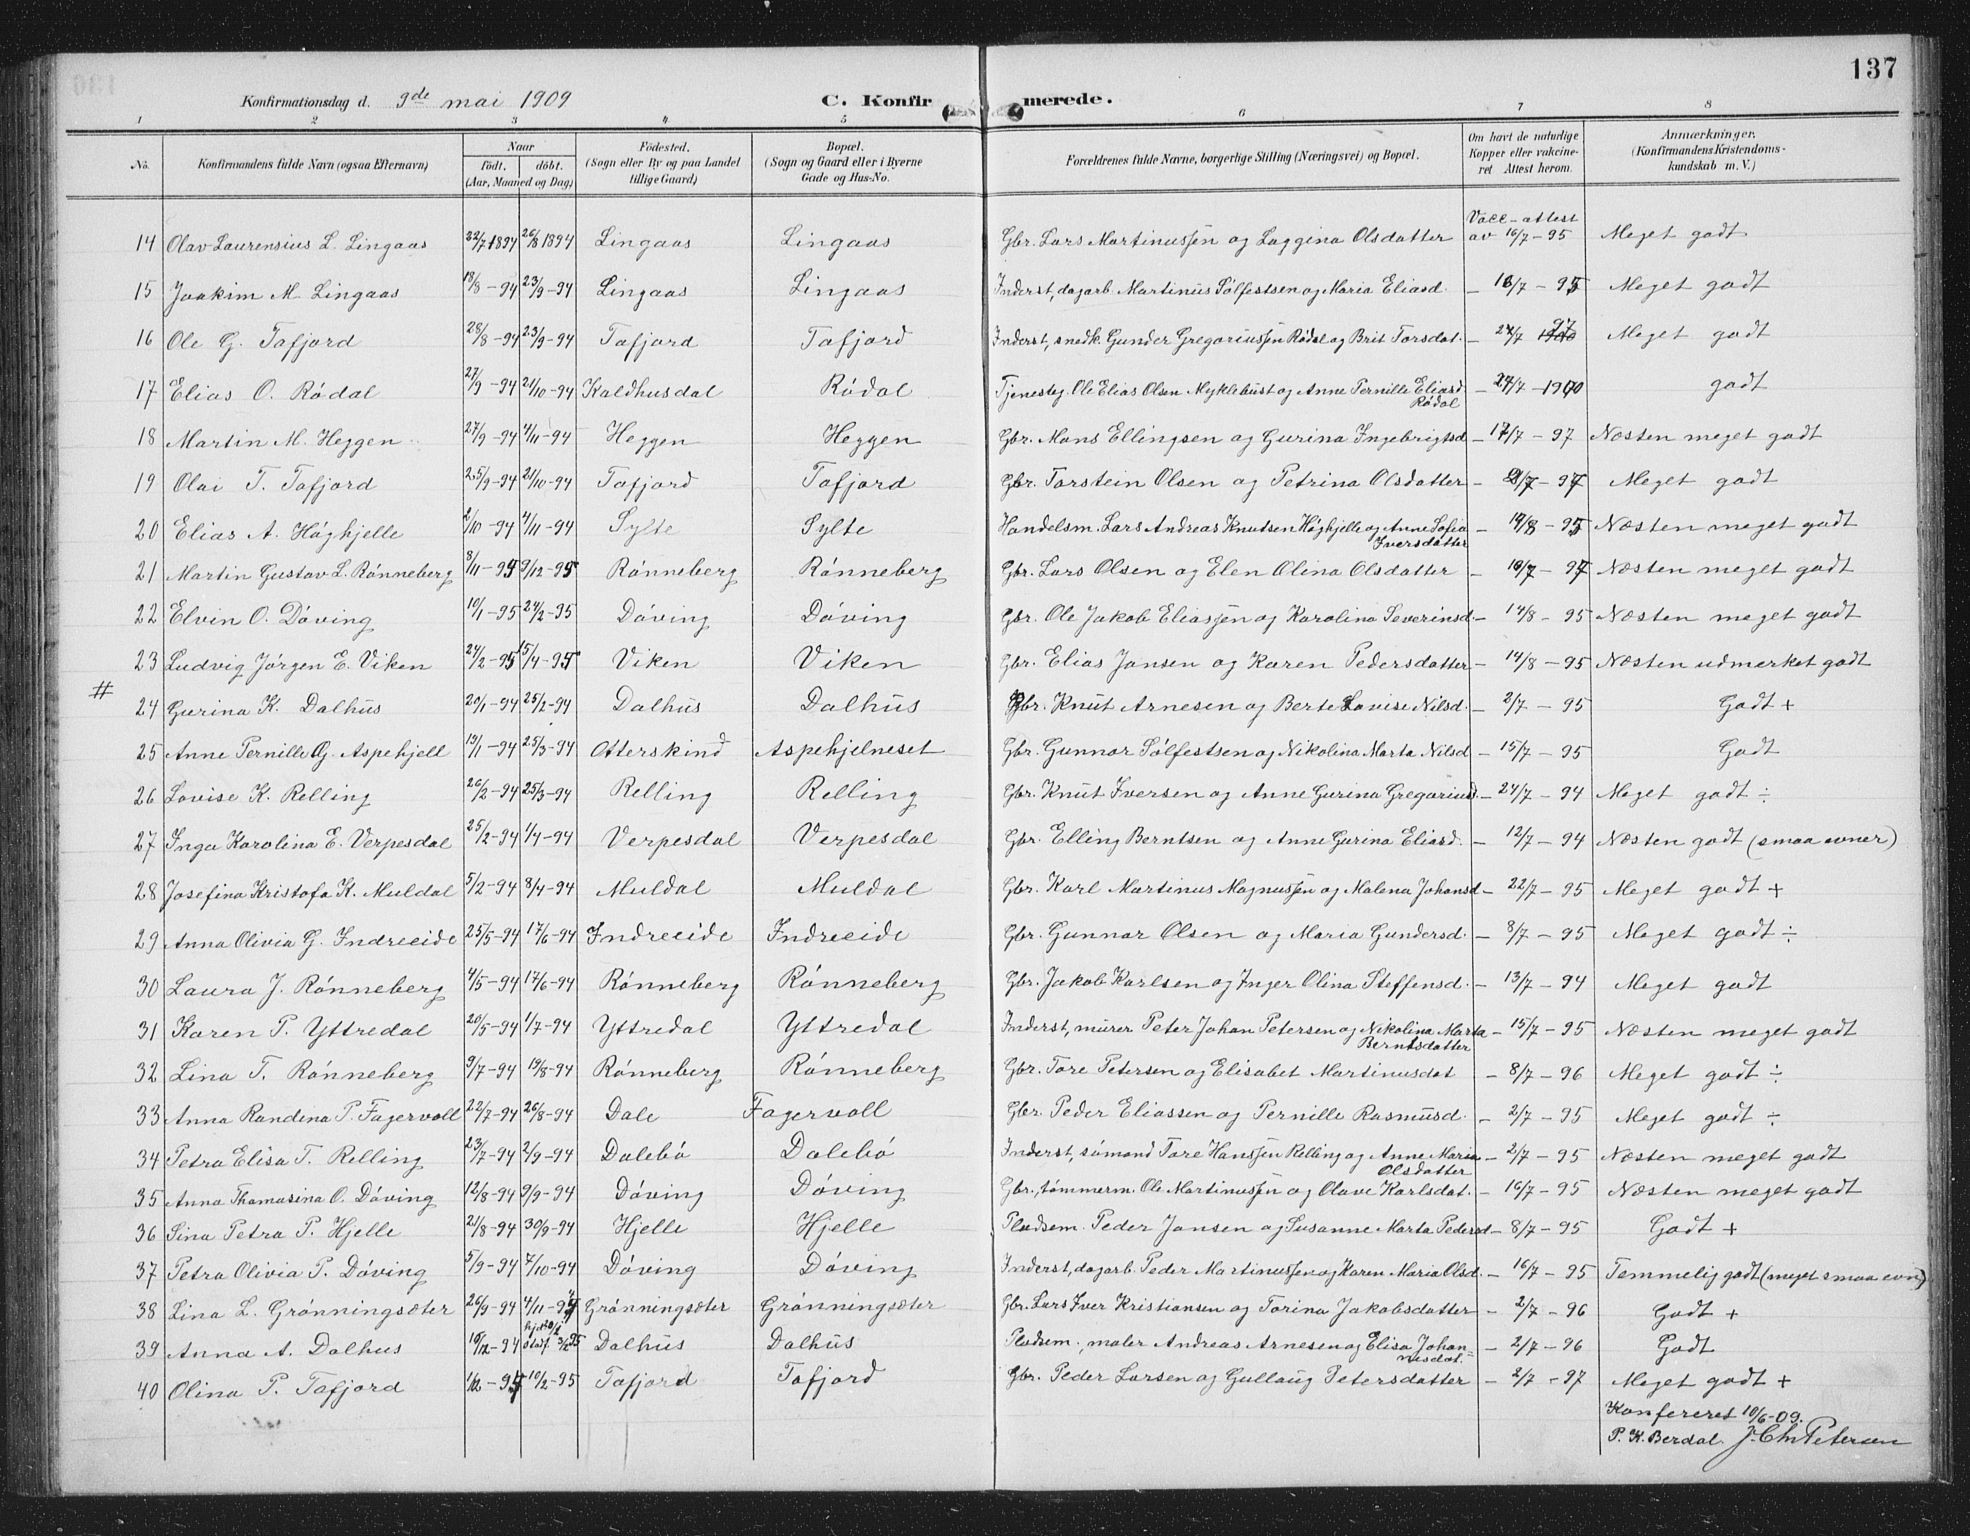 137
Konfirmationsdag d. 9de mai 1909 C. Konfirmerede.
1 2 3 4 5 6 7 8
No. Konfirmandens fulde Navn (ogsaa Efternavn) Naar födt. döbt. (Aar, Maaned og Dag) Födested. (Sogn eller By og paa Landet tillige Gaard) Bopæl. (Sogn og Gaard eller i Byerne Gade og Hus-No. Forældrenes fulde Navne, borgerlige Stilling (Næringsvei) og Bopæl. Om havt de naturlige Kopper eller vakcineret Attest herom. Anmærkninger. (Konfirmandens Kristendomskundskab m. V.)
14 Olav Laurensius L. Lingaas 22/7 1894 26/8 1894 Lingaas Lingaas Gbr. Lars Martinussen og Laggina Olsdatter Vacc-attest av 16/7-95 Meget godt
15 Joakim M. Lingaas 18/8-94 23/9-94 Lingaas Lingaas Inderst, dagarb. Martinus Sølfestsen og Maria Eliasd. - 16/7-95 Meget godt
16 Ole G. Tafjord 28/8-94 23/9-94 Tafjord Tafjord Inderst, snedk. Gunder Gregoriussen Rødal og Brit Torsdat. - 27/7 97 Meget godt
17 Elias O. Rødal 27/9-94 21/10-94 Kaldhusdal Rødal Tjenestg. Ole Elias Olsen Myklebust og Anne Pernille Eliasd Rødal - 27/7-1900 godt
18 Martin M. Heggen 27/9-94 4/11-94 Heggen Heggen Gbr. Mons Ellingsen og Gurina Ingebrigtsd - 17/7-97 Næsten meget godt
19 Olai T. Tafjord 25/9-94 21/10-94 Tafjord Tafjord Gbr. Torstein Olsen og Petrina Olsdatter - /7-97 Meget godt
20 Elias A. Høghjelle 2/10-94 4/11-94 Sylte Sylte Handelsm. Lars Andreas Knutsen Høghjelle og Anne Sofia Iversdatter - 14/8-95 Næsten meget godt
21 Martin Gustav L. Rønneberg 8/11-94 9/12-94 Rønneberg Rønneberg Gbr. Lars Olsen og Elen Olina Olsdatter - 10/7-97 Næsten meget godt
22 Elvin O. Døving 10/1-95 24/2-95 Døving Døving Gbr. Ole Jakob Eliassen og Karolina Severinsd - 14/8-95 Næsten meget godt
23 Ludvig Jørgen E. Viken 24/2-95 15/4-95 Viken Viken Gbr. Elias Jansen og Karen Pedersdatter - 14/8-95 Næsten udmerket godt
# 24 Gurina K. Dalhus 20/1-94 25/2-94 Dalhus Dalhus Gbr. Knut Arnesen og Berte Lovise Nilsd. - 2/7-95 Godt +
25 Anne Pernille G. Aspehjell 19/1-94 25/3-94 Otterskind Aspehjelneset Gbr. Gunnar Sølfestsen og Nikolina Marta Nilsd - 15/7-95 Godt
26 Lovise K. Relling 26/2-94 25/3-94 Relling Relling Gbr. Knut Iversen og Anne Gurina Gregoriusd. - 24/7-94 Meget godt ÷
27 Inga Karolina E. Verpesdal 25/2-94 1/4-94 Verpesdal Verpesdal Gbr. Elling Berntsen og Anne Gurina Eliasd. - 12/7-94 Næsten godt (smaa evner)
28 Josefina Kristofa K. Muldal 5/2-94 8/4-94 Muldal Muldal Gbr. Karl Martinus Magnussen og Malena Johansd - 22/7-95 Meget godt +
29 Anna Olivia G. Indreeide 25/5-94 17/6-94 Indreeide Indreeide Gbr. Gunnar Olsen og Maria Gundersd. - 8/7-95 Meget godt ÷
30 Laura J. Rønneberg 4/5-94 17/6-94 Rønneberg Rønneberg Gbr. Jakob Karlsen og Inger Olina Steffensd. - 13/7-94 Meget godt
31 Karen P. Yttredal 20/5-94 1/7-94 Yttredal Yttredal Inderst, murer Peter Johan Petersen og Nikolina Marta Berntsdatter - 15/7-95 Næsten meget godt
32 Lina T. Rønneberg 9/7-94 19/8-94 Rønneberg Rønneberg Gbr. Tore Petersen og Elisabet Martinusdat - 8/7-96 Meget godt ÷
33 Anna Randina P. Fagervoll 22/7-94 26/8-94 Dale Fagervoll Gbr. Peder Eliassen og Pernille Rasmusd. - 2/7-95 Meget godt ÷
34 Petra Elisa T. Relling 23/7-94 2/9-94 Dalebø Dalebø Inderst, sømand Tore Hanssen Relling og Anne Maria Olsdatter - 2/7-95 Næsten meget godt
35 Anna Thomasina O. Døving 12/8-94 9/9-94 Døving Døving Gbr., tømmerm. Ole Martinussen og Olave Karlsdat. - 16/7-95 Næsten meget godt
36 Sina Petra P. Hjelle 21/8-94 30/9-94 Hjelle Hjelle Pladsem. Peder Jansen og Susanne Marta Pedersd - 8/7-95 Godt +
37 Petra Olivia P. Døving 5/9-94 7/10-94 Døving Døving Inderst, dagarb. Peder Martinussen og Karen Maria Olsd. - 16/7-95 Temmelig godt (meget smaa evn)
38 Lina L. Grønningsæter 26/9-94 4/11-94 Grønningsæter Grønningsæter Gbr. Lars Iver Kristiansen og Torina Jakobsdatter - 2/7-96 Godt +
39 Anna A. Dalhus 10/12-94 hjd 20/1 stadf. 3/2 95 Dalhus Dalhus Pladsem., maler Andreas Arnesen og Elisa Johannesdat. - 2/7-96 Godt
40 Olina P. Tafjord 1/2-95 10/2-95 Tafjord Tafjord Gbr. Peder Larsen og Gullaug Petersdatter - 2/7-97 Meget godt +
Konfereret 10/6-09.
P. K. Berdal. J. Chr Petersen